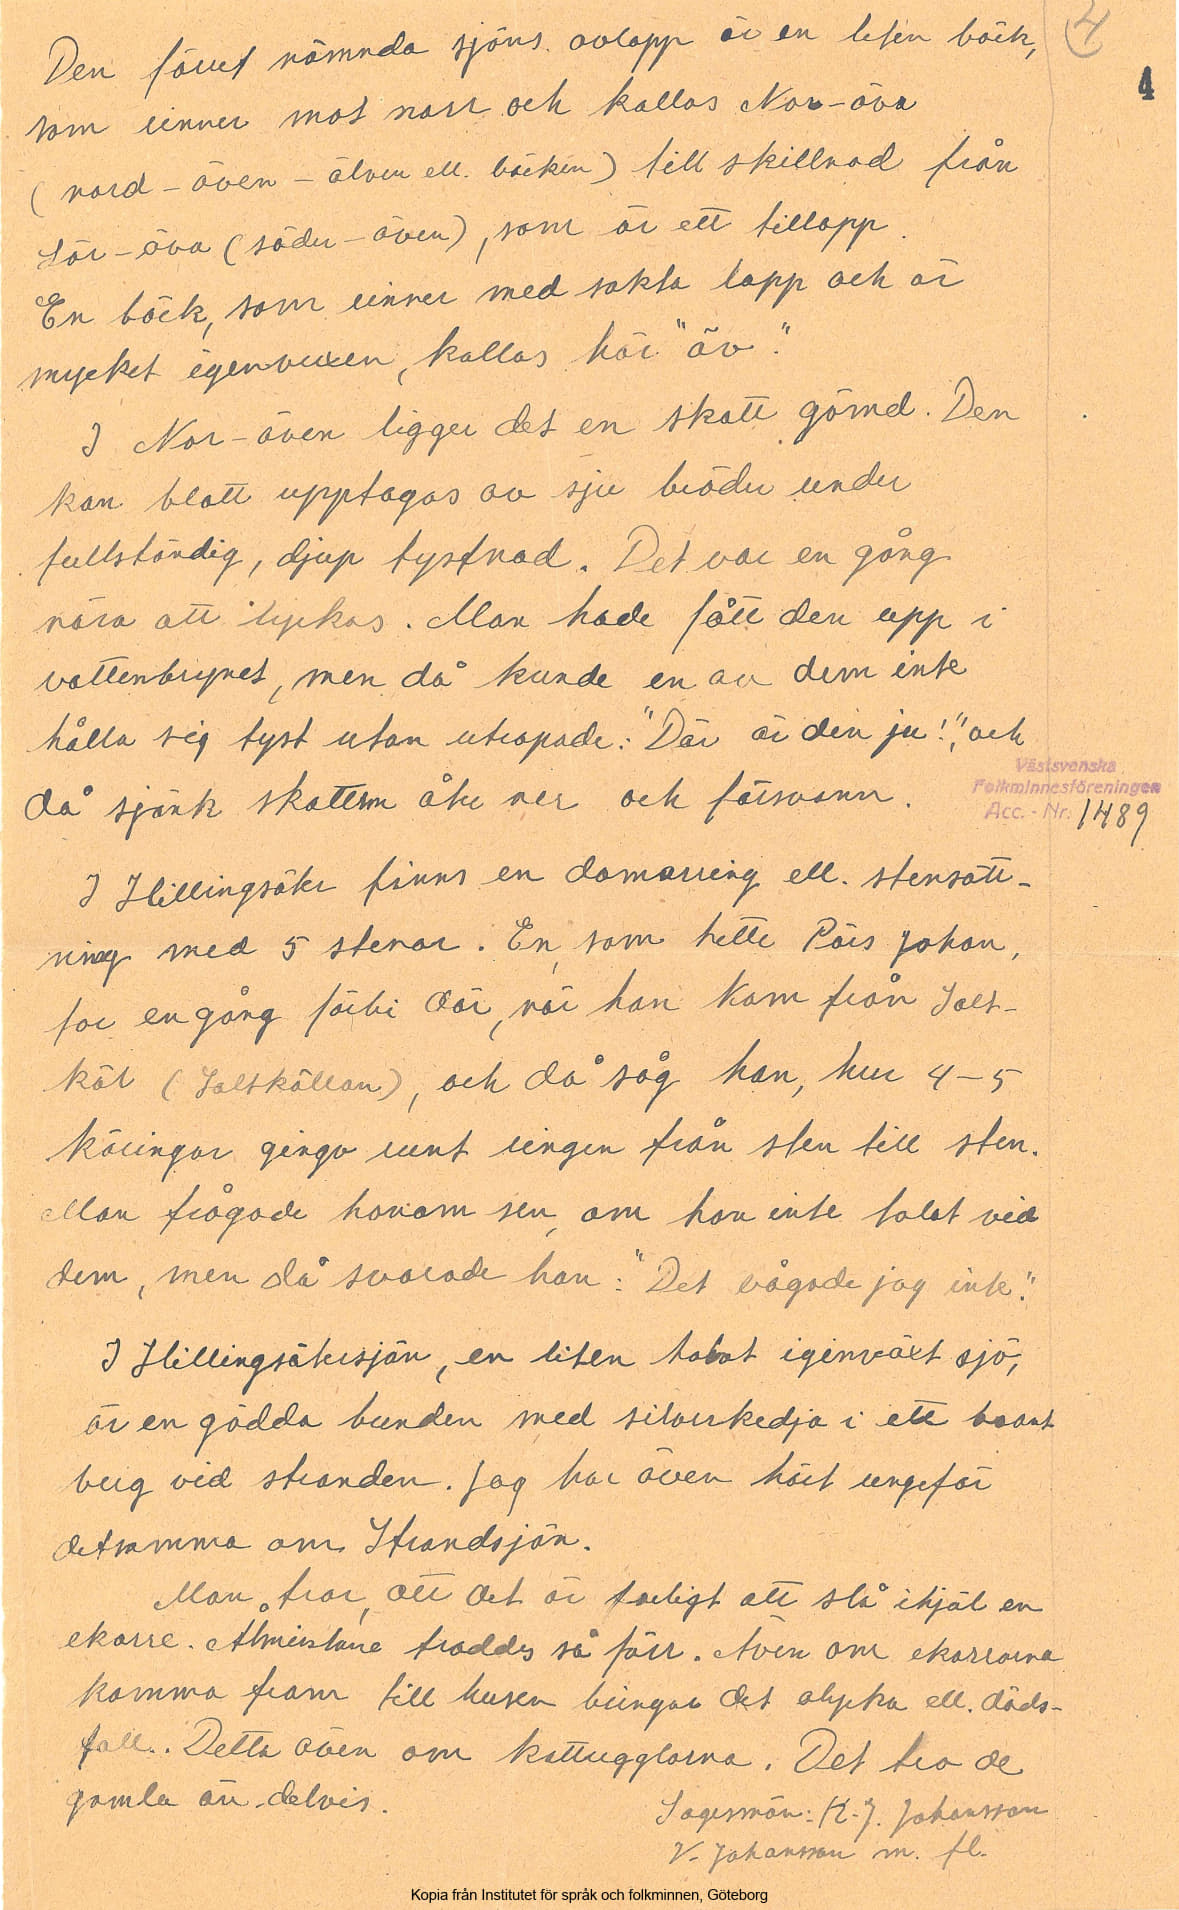 4
4
Den förut nämnda sjöns avlopp är en liten bäck,
som rinner mot norr och kallas Nor-öva
(nord-öven - älven ell. bäcken) till skillnad från
Sör-öva (söder-öven), som är ett tillopp.
En bäck, som rinner med sakta lopp och är
mycket igenvuxen, kallas här "öv".
I Nor-öven ligger det en skatt gömd. Den
kan blott upptagas av sju bröder under
fullständig, djup tystnad. Det var en gång
nära att lyckas. Man hade fått den upp i
vattenbrynet, men då kunde en av dem inte
hålla sig tyst utan utropade: "Där är den ju!", och
då sjönk skatten åter ner och försvann.
Västsvenska
Folkminnesföreningen
Acc. - Nr. 1489
I Hillingsäter finns en domarring ell. stensätt-
ning med 5 stenar. En, som hette Pärs Johan,
for en gång förbi där, när han kom från Salt-
käl (Saltkällan), och då såg han, hur 4-5
käringar gingo runt ringen från sten till sten.
Man frågade honom sen, om han inte talat vid
dem, men då svarade han: "Det vågade jag inte."
I Hillingsätersjön, en liten totalt igenväxt sjö,
är en gädda bunden med silverkedja i ett brant
berg vid stranden. Jag har även hört ungefär
detsamma om Strandsjön.
Man tror, att det är farligt att slå ihjäl en
ekorre. Åtminstone troddes så förr. Även om ekorrarna
komma fram till husen bringar det olycka ell. döds-
fall. Detta även om kattugglorna. Det tro de
gamla än delvis.
Sagesmän: K. J. Johansson
V. Johansson m. fl.
Kopia från Institutet för språk och folkminnen, Göteborg